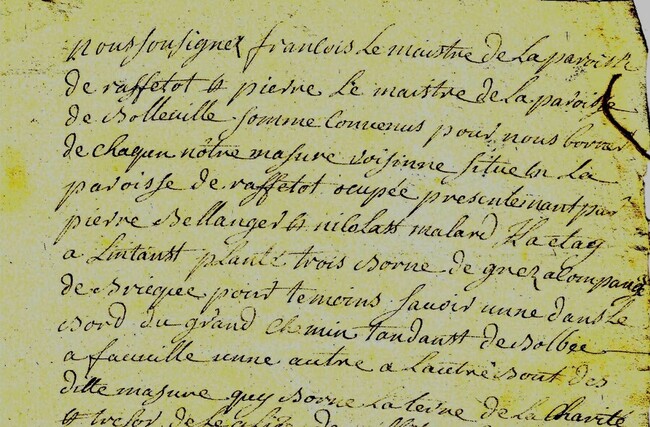 nous sousignez francois Le maistre de La paroisse
de raffetot et pierre Le maistre de La paroisse
de Bolleville somme Convenus pour nous borner
de chaqun nôtre masure voisinne situé en La
paroisse de raffetot ocupée presentemant par
pierre Bellanger et nicolass malard
a Lintanst planté trois Borne de grez acompangé
de Bricque pour temoins savoir unne dans Le
Bord du grand chemin tandanst de Bolbec
a fauville unne autre a Lautre Bout des
ditte masure quy Borne La terre de La Charité
et tresor de